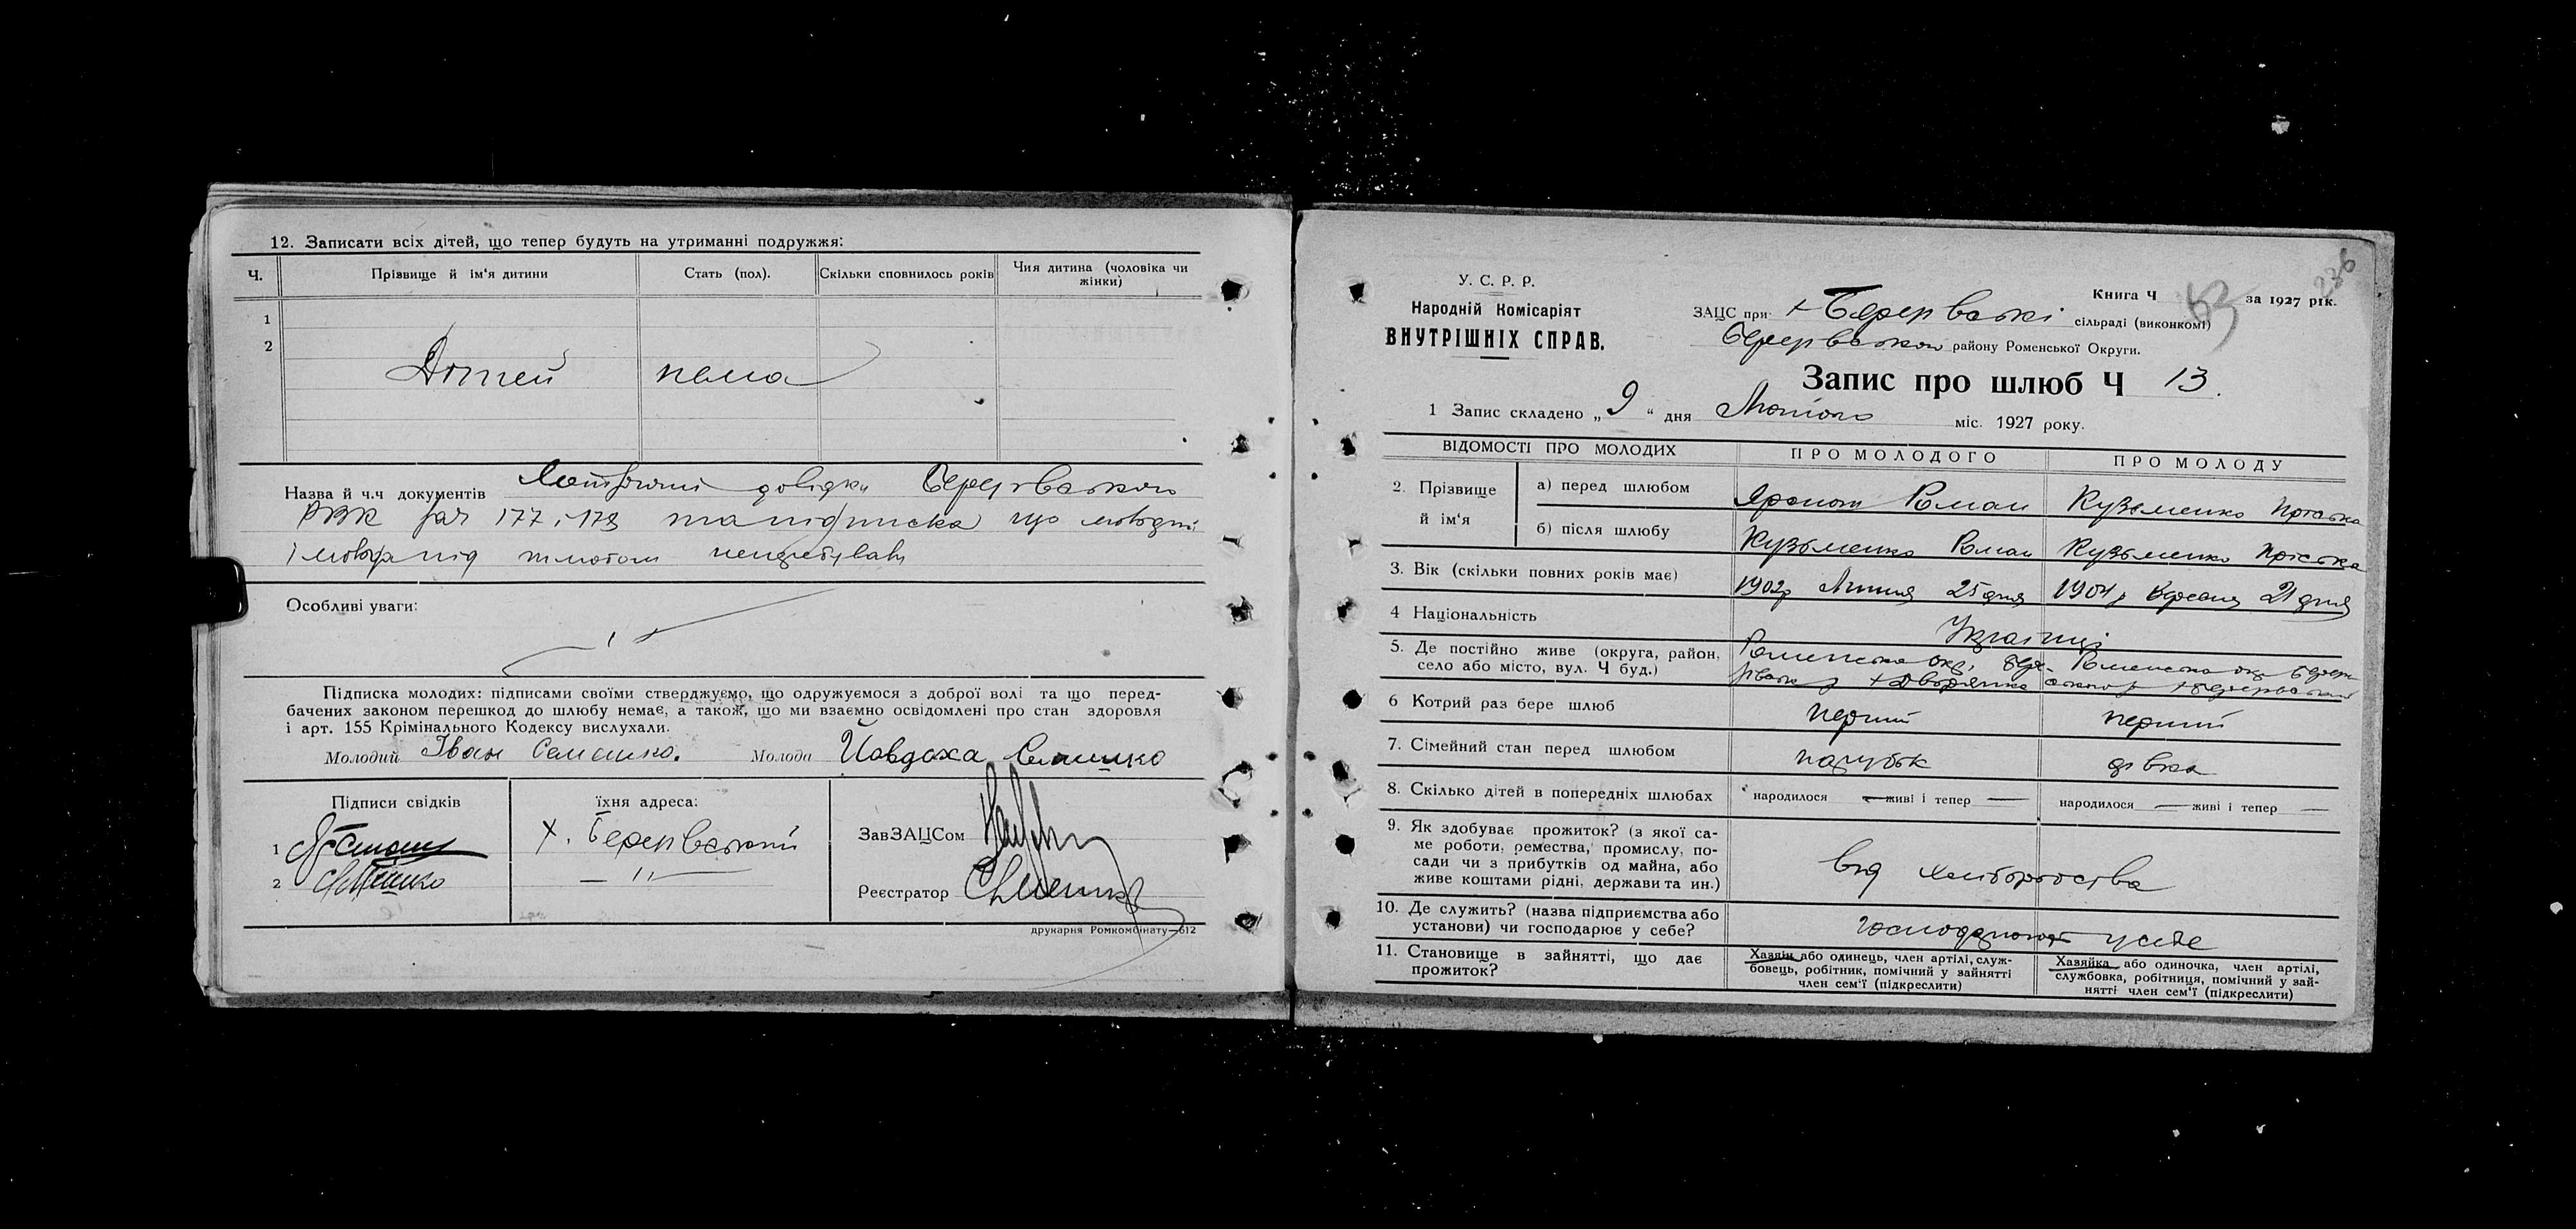 12. Записати всіх дітей, що тепер будуть на утриманні подружжя:
Ч. Прізвище й ім'я дитини Стать (пол). Скільки сповнилось років Чия дитина (чоловіка чи жінки)
1
2
Дітей нема
Назва й ч.ч документів довідки
РВК 177 і 178 та підписка що молодий
і молода під шлюбом
Особливі уваги:
Підписка молодих: підписами своїми стверджуємо, що одружуємося з доброї волі та що перед-
бачених законом перешкод до шлюбу немає, а також, що ми взаємно освідомлені про стан здоровля
і арт. 155 Крімінального Кодексу вислухали.
Молодий Іван Семешко. Молода Йовдоха
Підписи свідків їхня адреса:
1 х.
ЗавЗАЦСом
2 — " —
Реєстратор
друкарня Ромкомбінату—612
236
У. С. Р. Р.
Народній Комісаріят
ВНУТРІШНІХ СПРАВ.
Книга Ч за 1927 рік.
ЗАЦС при сільраді (виконкомі)
району Роменської Округи.
Запис про шлюб Ч 13.
1 Запис складено „9“ дня Лютого міс. 1927 року.
ВІДОМОСТІ ПРО МОЛОДИХ ПРО МОЛОДОГО ПРО МОЛОДУ
2. Прізвище й ім'я
а) перед шлюбом Роман Кузьменко
б) після шлюбу Кузьменко Роман Кузьменко Пріська
3. Вік (скільки повних років має) 1902р Липня 25 дня 1904р Вересня 21 дня
4 Національність Українці
5. Де постійно живе (округа, район,
село або місто, вул. Ч буд.) Роменська окр. Роменська окр
6 Котрий раз бере шлюб перший перший
7. Сімейний стан перед шлюбом парубок дівка
8. Скілько дітей в попередніх шлюбах народилося — живі і тепер — народилося — живі і тепер —
9. Як здобуває прожиток? (з якої са-
ме роботи, ремества, промислу, по-
сади чи з прибутків од майна, або
живе коштами рідні, держави та ин.)
від хліборобства
10. Де служить? (назва підприємства або
установи) чи господарює у себе?
у себе
11. Становище в зайнятті, що дає
прожиток?
Хазяїн або одинець, член артілі, служ-
бовець, робітник, помічний у зайнятті
член сем'ї (підкреслити)
Хазяйка або одиночка, член артілі,
службовка, робітниця, помічний у зай-
нятті член сем'ї (підкреслити)